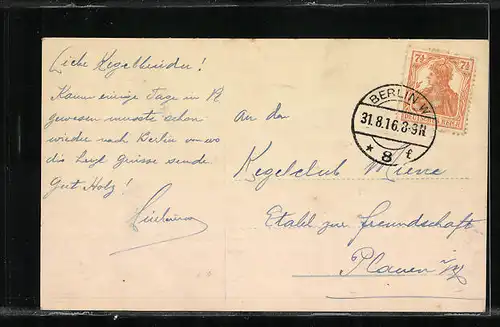 Liebe Kegelbrüder!
Kaum einige Tage in Pl.
gewesen musste schon
wieder nach Berlin von wo
die herzl. Grüsse sende
Gut Holz!
An den
Kegelclub Mieze
Etabl. zur Freundschaft
Plauen i/V.
BERLIN W.
31.8.16.8-9N.
* 8 f
7½ 7½
DEUTSCHES REICH